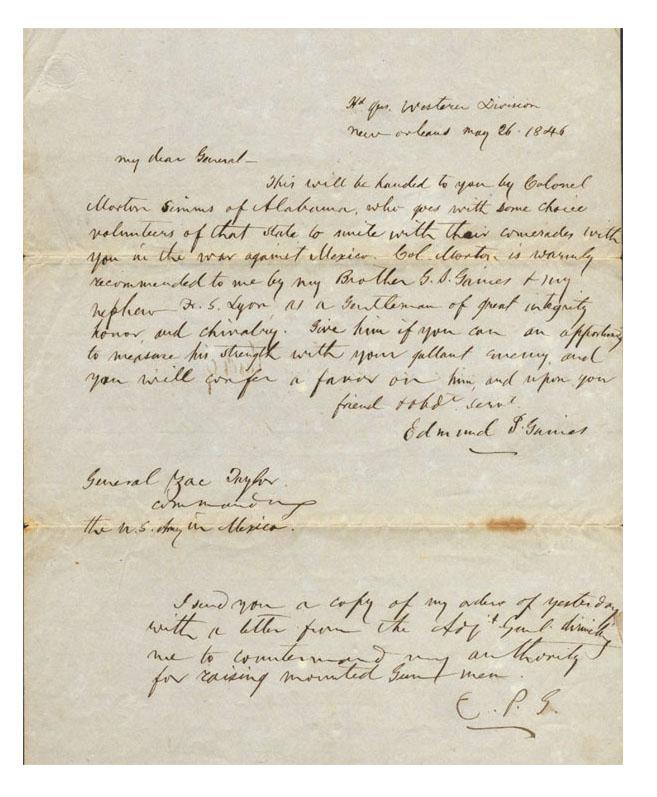 Hd qrs. Western Division
New Orleans May 26. 1846
My dear General —
This will be handed to you by Colonel
Morton Simms of Alabama, who goes with some choice
volunteers of that State to unite with their comrades with
you in the war against Mexico. Col. Morton is warmly
recommended to me by my Brother G. S. Gaines & my
nephew F. S. Lyon, as a Gentleman of great integrity
honor, and chivalry. Give him if you can an opportunity
to measure his strength with your gallant enemy, and
you will confer a favor on him, and upon your
friend & obdt servt
Edmund P. Gaines
General Zac Taylor
commanding
the U.S. Army in Mexico.
I send you a copy of my orders of yesterday
with a letter from the Adjt Genl. directing
me to countermand my authority
for raising mounted Gun men.
E. P. G.